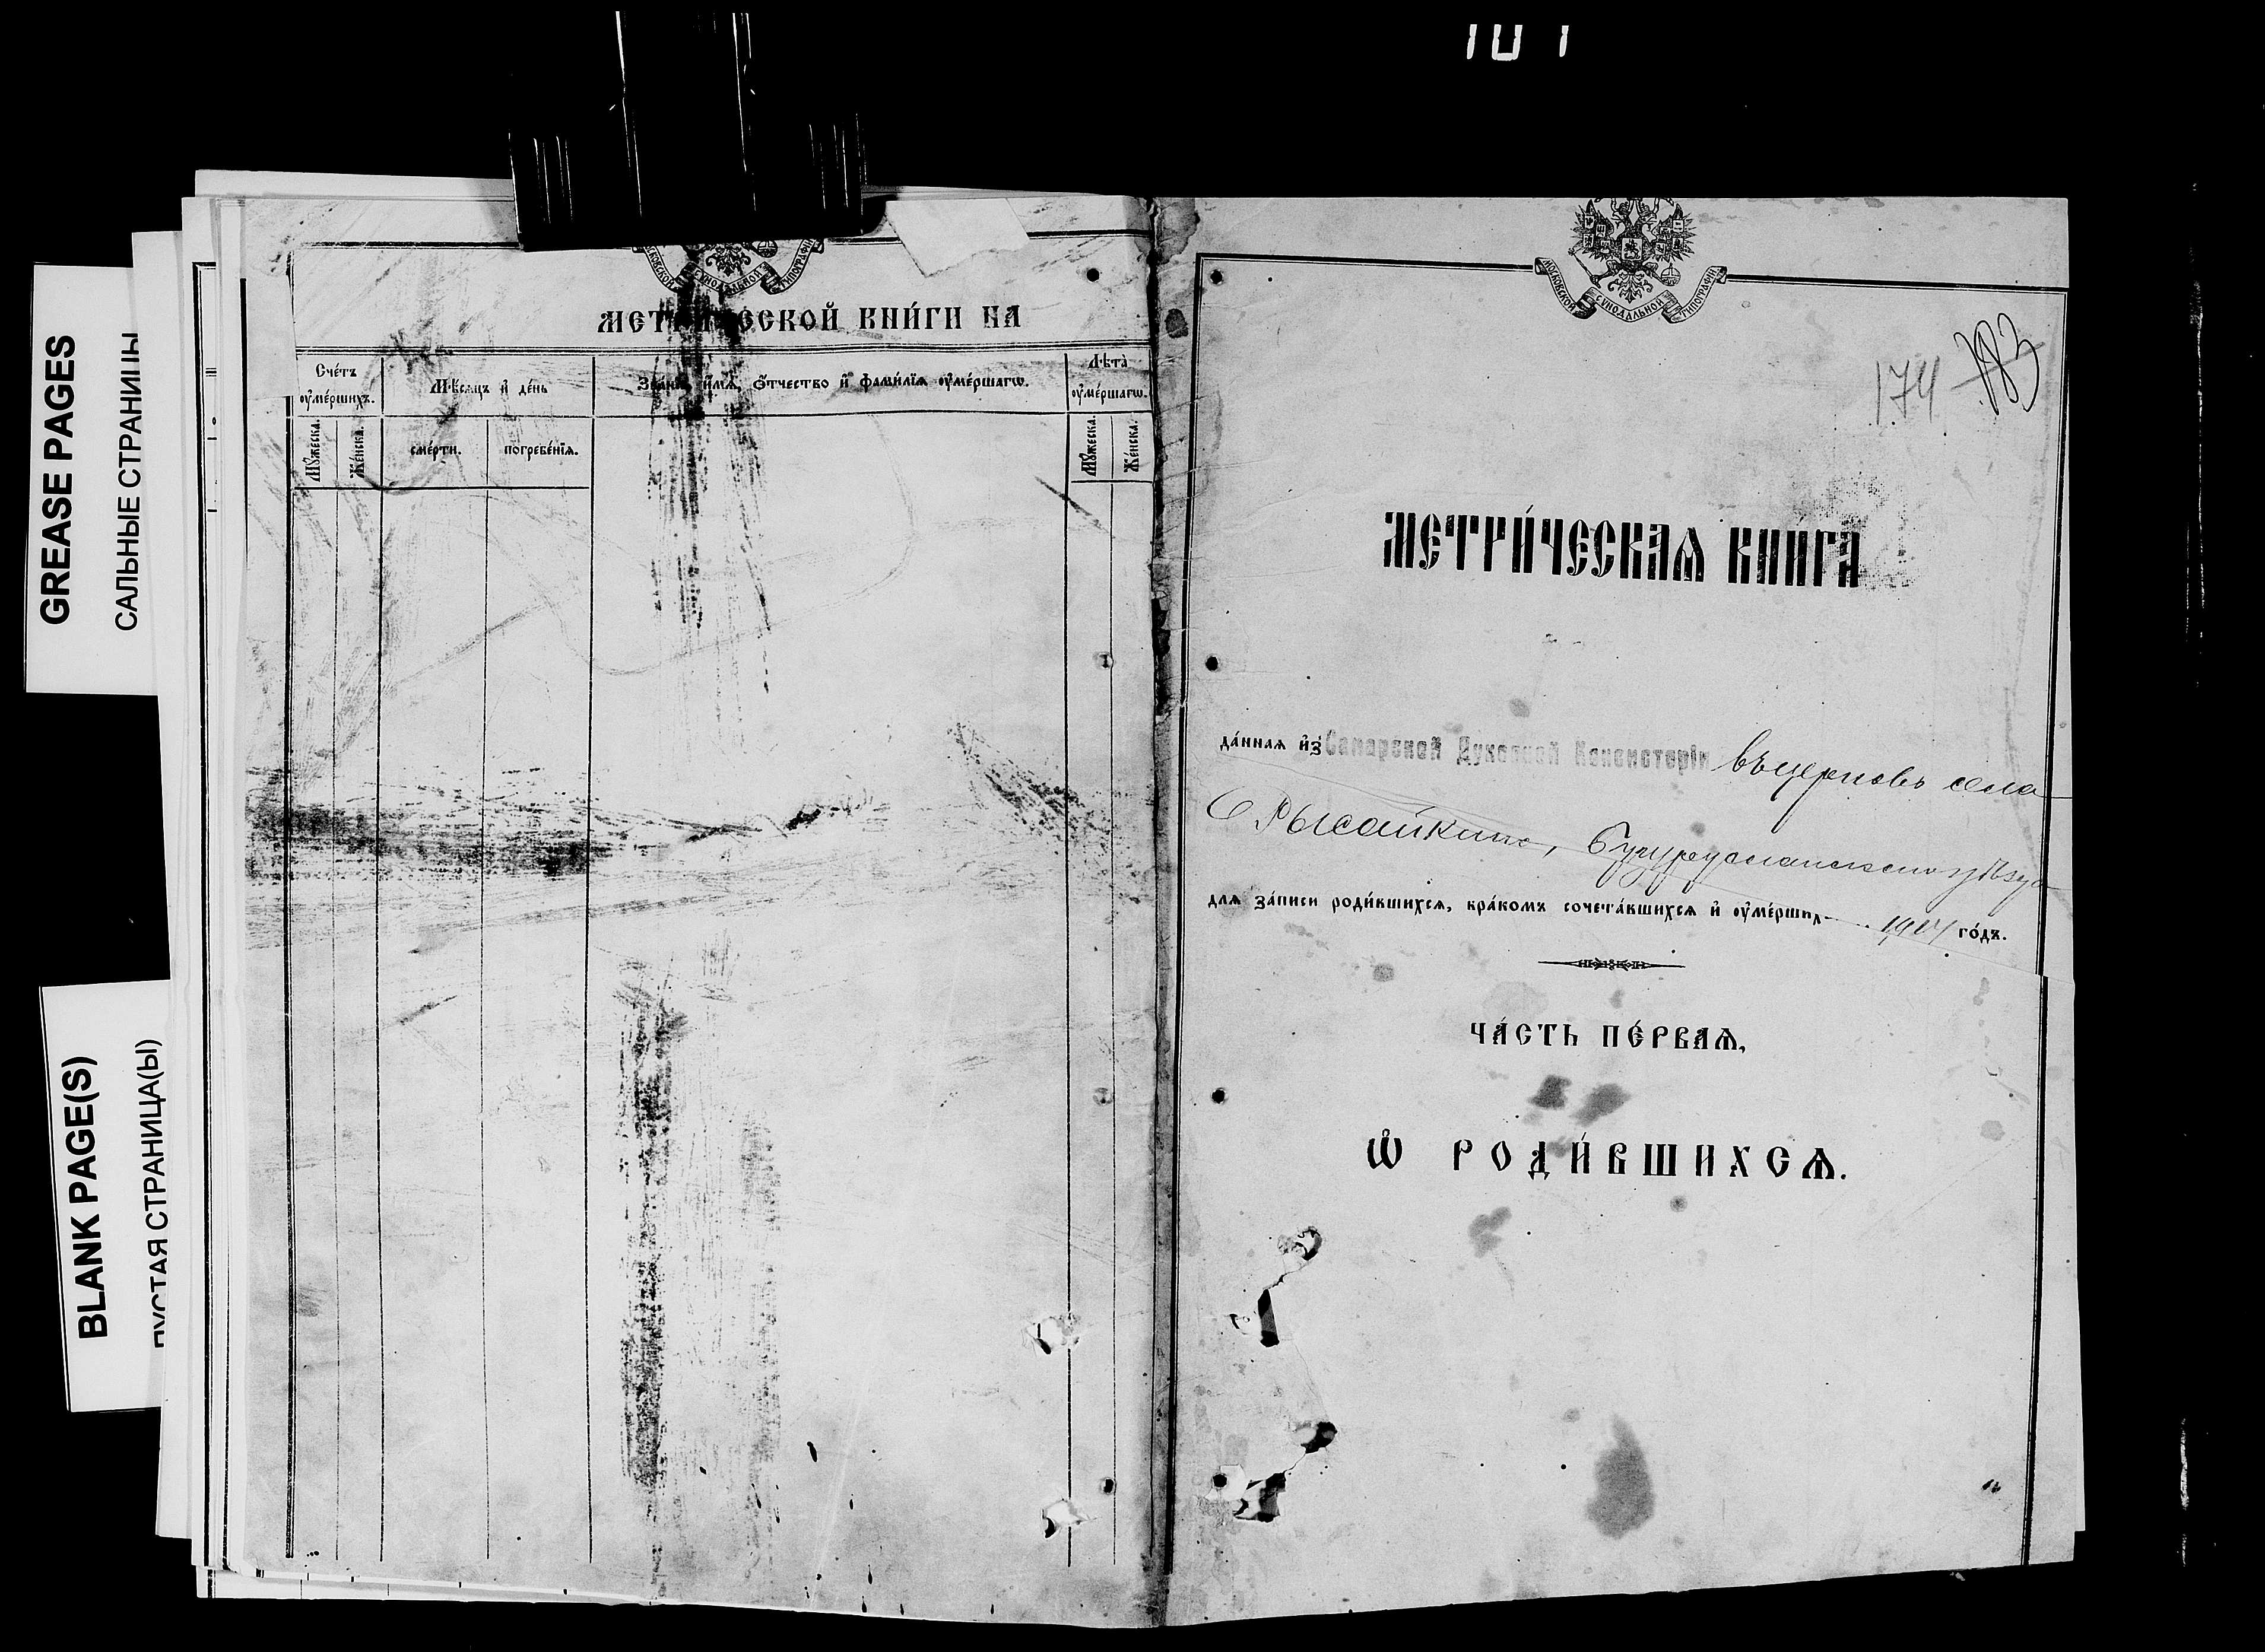 GREASE PAGES
САЛЬНЫЕ СТРАНИЦЫ
BLANK PAGE(S)
ПУСТАЯ СТРАНИЦА(Ы)
СѴНОДАЛЬНОЙ ТИПОГРАФІИ
МЕТРИЧЕСКОЙ КНИ́ГИ НА
Сче́тъ оу҆ме́ршихъ.
Мѣ́сяцъ и҆ де́нь
Зва́нїе, и҆́мѧ, ѻ҆́тчество и҆ фами́лїѧ оу҆ме́ршагѡ.
Лѣ́та оу҆ме́ршагѡ.
Мꙋ́жеска.
Же́нска.
сме́рти.
погребе́нїѧ.
Мꙋ́жеска.
Же́нска.
МОСКОВСКОЙ СѴНОДАЛЬНОЙ ТИПОГРАФІИ
174 183
МЕТРИ́ЧЕСКАѦ КНИ́ГА
да́ннаѧ и҆з̾ Самарской Духовной Консисторіи въ церковь села
Рысайкино, Бугурусланскаго уѣзда
длѧ за́писи роди́вшихсѧ, бра́комъ сочета́вшихсѧ и҆ оу҆ме́рших 1904 го́дъ.
ЧА́СТЬ ПЕ́РВАѦ,
Ѡ҆ РОДИ́ВШИХСѦ.